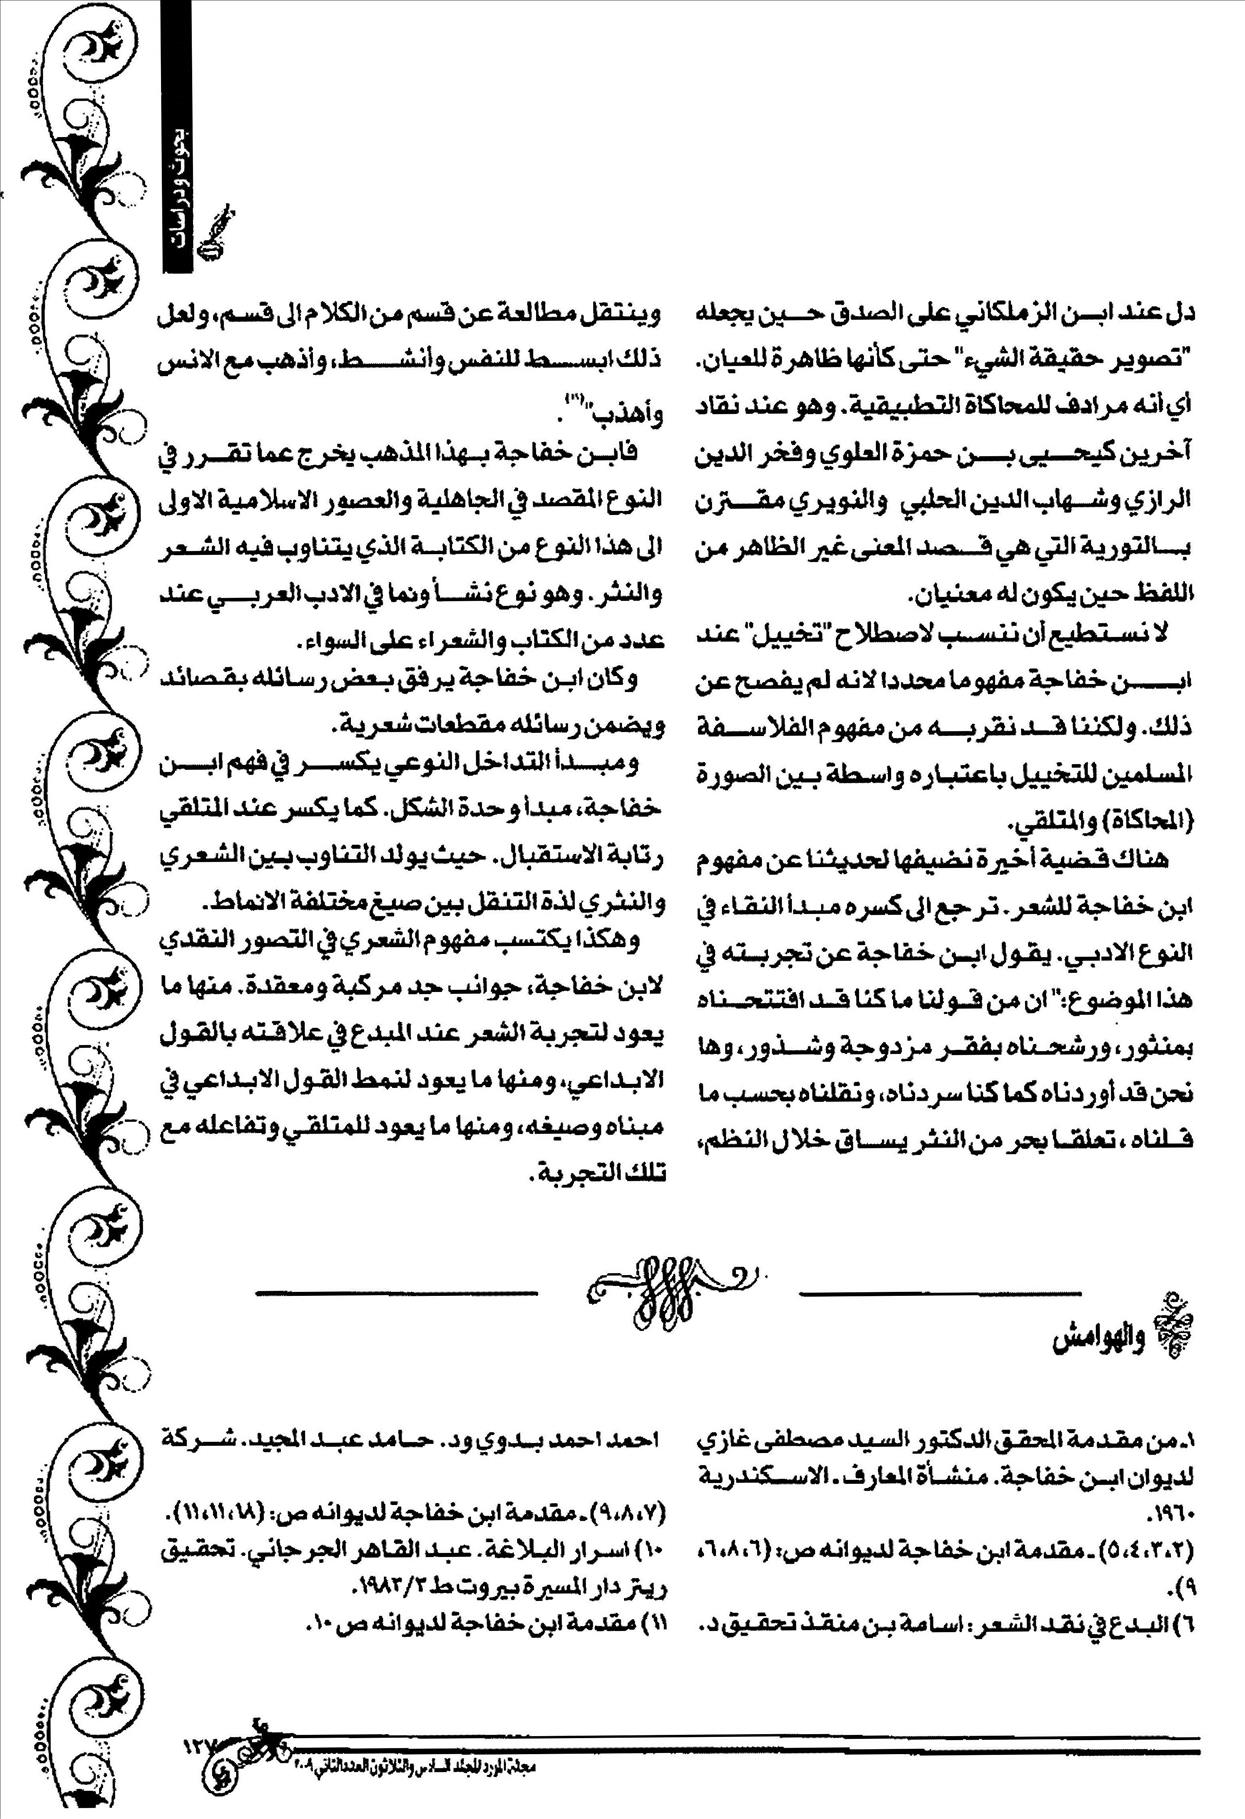 بحوث ودراسات
دل عند ابـن الزملكاني على الصدق حـين يجعله
"تصوير حقيقة الشيء" حتى كأنها ظاهرة للعيان.
أي أنه مرادف للمحاكاة التطبيقية. وهو عند نقاد
آخرين كيحيى بـن حمزة العلوي وفخر الدين
الرازي وشهاب الدين الحلبي والنويري مقترن
بالتورية التي هي قصد المعنى غير الظاهر من
اللفظ حين يكون له معنيان.
لا نستطيع أن ننسب لاصطلاح "تخييل" عند
ابن خفاجة مفهوما محددا لانه لم يفصح عن
ذلك. ولكننا قد نقربه من مفهوم الفلاسفة
المسلمين للتخييل باعتباره واسطة بين الصورة
(المحاكاة) والمتلقي.
هناك قضية أخيرة نضيفها لحديثنا عن مفهوم
ابن خفاجة للشعر. ترجع الى كسره مبدأ النقاء في
النوع الادبي. يقول ابن خفاجة عن تجربته في
هذا الموضوع:" ان من قولنا ما كنا قد افتتحناه
بمنثور، ورشحناه بفقر مزدوجة وشذور، وها
نحن قد أوردناه كما كنا سردناه، ونقلناه بحسب ما
قلناه، تعلقا بحر من النثر يساق خلال النظم،
وينتقل مطالعة عن قسم من الكلام الى قسم، ولعل
ذلك ابسط للنفس وأنشط، وأذهب مع الانس
وأهذب"(١١).
فابن خفاجة بهذا المذهب يخرج عما تقرر في
النوع المقصد في الجاهلية والعصور الاسلامية الاولى
الى هذا النوع من الكتابة الذي يتناوب فيه الشعر
والنثر. وهو نوع نشأ ونما في الادب العربي عند
عدد من الكتاب والشعراء على السواء.
وكان ابن خفاجة يرفق بعض رسائله بقصائد
ويضمن رسائله مقطعات شعرية.
ومبدأ التداخل النوعي يكسر في فهم ابن
خفاجة، مبدأ وحدة الشكل. كما يكسر عند المتلقي
رتابة الاستقبال. حيث يولد التناوب بين الشعري
والنثري لذة التنقل بين صيغ مختلفة الانماط.
وهكذا يكتسب مفهوم الشعري في التصور النقدي
لابن خفاجة، جوانب جد مركبة ومعقدة. منها ما
يعود لتجربة الشعر عند المبدع في علاقته بالقول
الابداعي، ومنها ما يعود لنمط القول الابداعي في
مبناه وصيغه، ومنها ما يعود للمتلقي وتفاعله مع
تلك التجربة.
والهوامش
١ـ من مقدمة المحقق الدكتور السيد مصطفى غازي
لديوان ابن خفاجة. منشأة المعارف ـ الاسكندرية
١٩٦٠.
(٢،٣،٤،٥) ـ مقدمة ابن خفاجة لديوانه ص: (٦،٨،٦،
٩).
٦) البدع في نقد الشعر: اسامة بن منقذ تحقيق د.
احمد احمد بدوي ود. حامد عبد المجيد. شركة
(٧،٨،٩) ـ مقدمة ابن خفاجة لديوانه ص: (١٨،١١،١١).
١٠) اسرار البلاغة. عبد القاهر الجرجاني. تحقيق
ريتر دار المسيرة بيروت ط ١٩٨٣/٣.
١١) مقدمة ابن خفاجة لديوانه ص ١٠.
١٢٧
مجلة المورد المجلد السادس والثلاثون العدد الثاني ٢٠٠٩